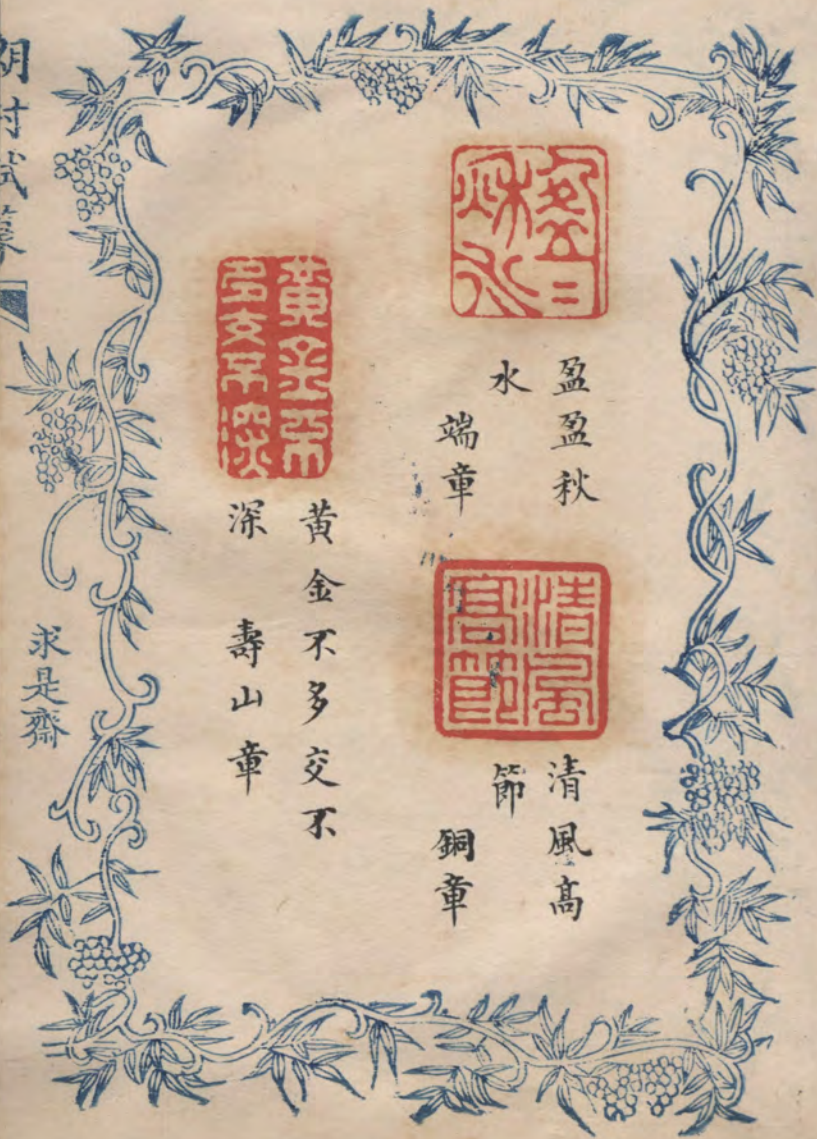 盈二
秋水
盈盈秋
水
端章
清風
高節
清風高
節
銅章
黃金不
多交不深
黃金不多交不
深 壽山章
村試篆
求是齋